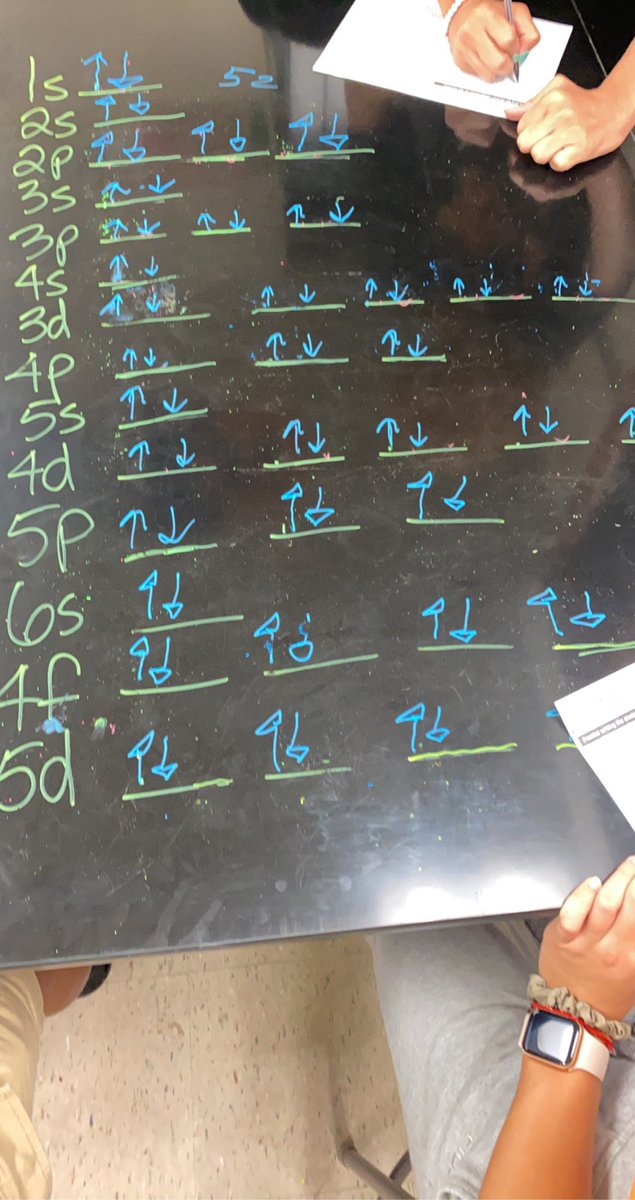 1s ↑↓ 52
2s ↑↓
2p ↑↓ ↑↓ ↑↓
3s ↑↓
3p ↑↓ ↑↓ ↑↓
4s ↑↓
3d ↑↓ ↑↓ ↑↓ ↑↓ ↑↓
4p ↑↓ ↑↓ ↑↓
5s ↑↓
4d ↑↓ ↑↓ ↑↓ ↑↓ ↑
5p ↑↓ ↑↓ ↑↓
6s ↑↓
4f ↑↓ ↑↓ ↑↓ ↑↓
5d ↑↓ ↑↓ ↑↓